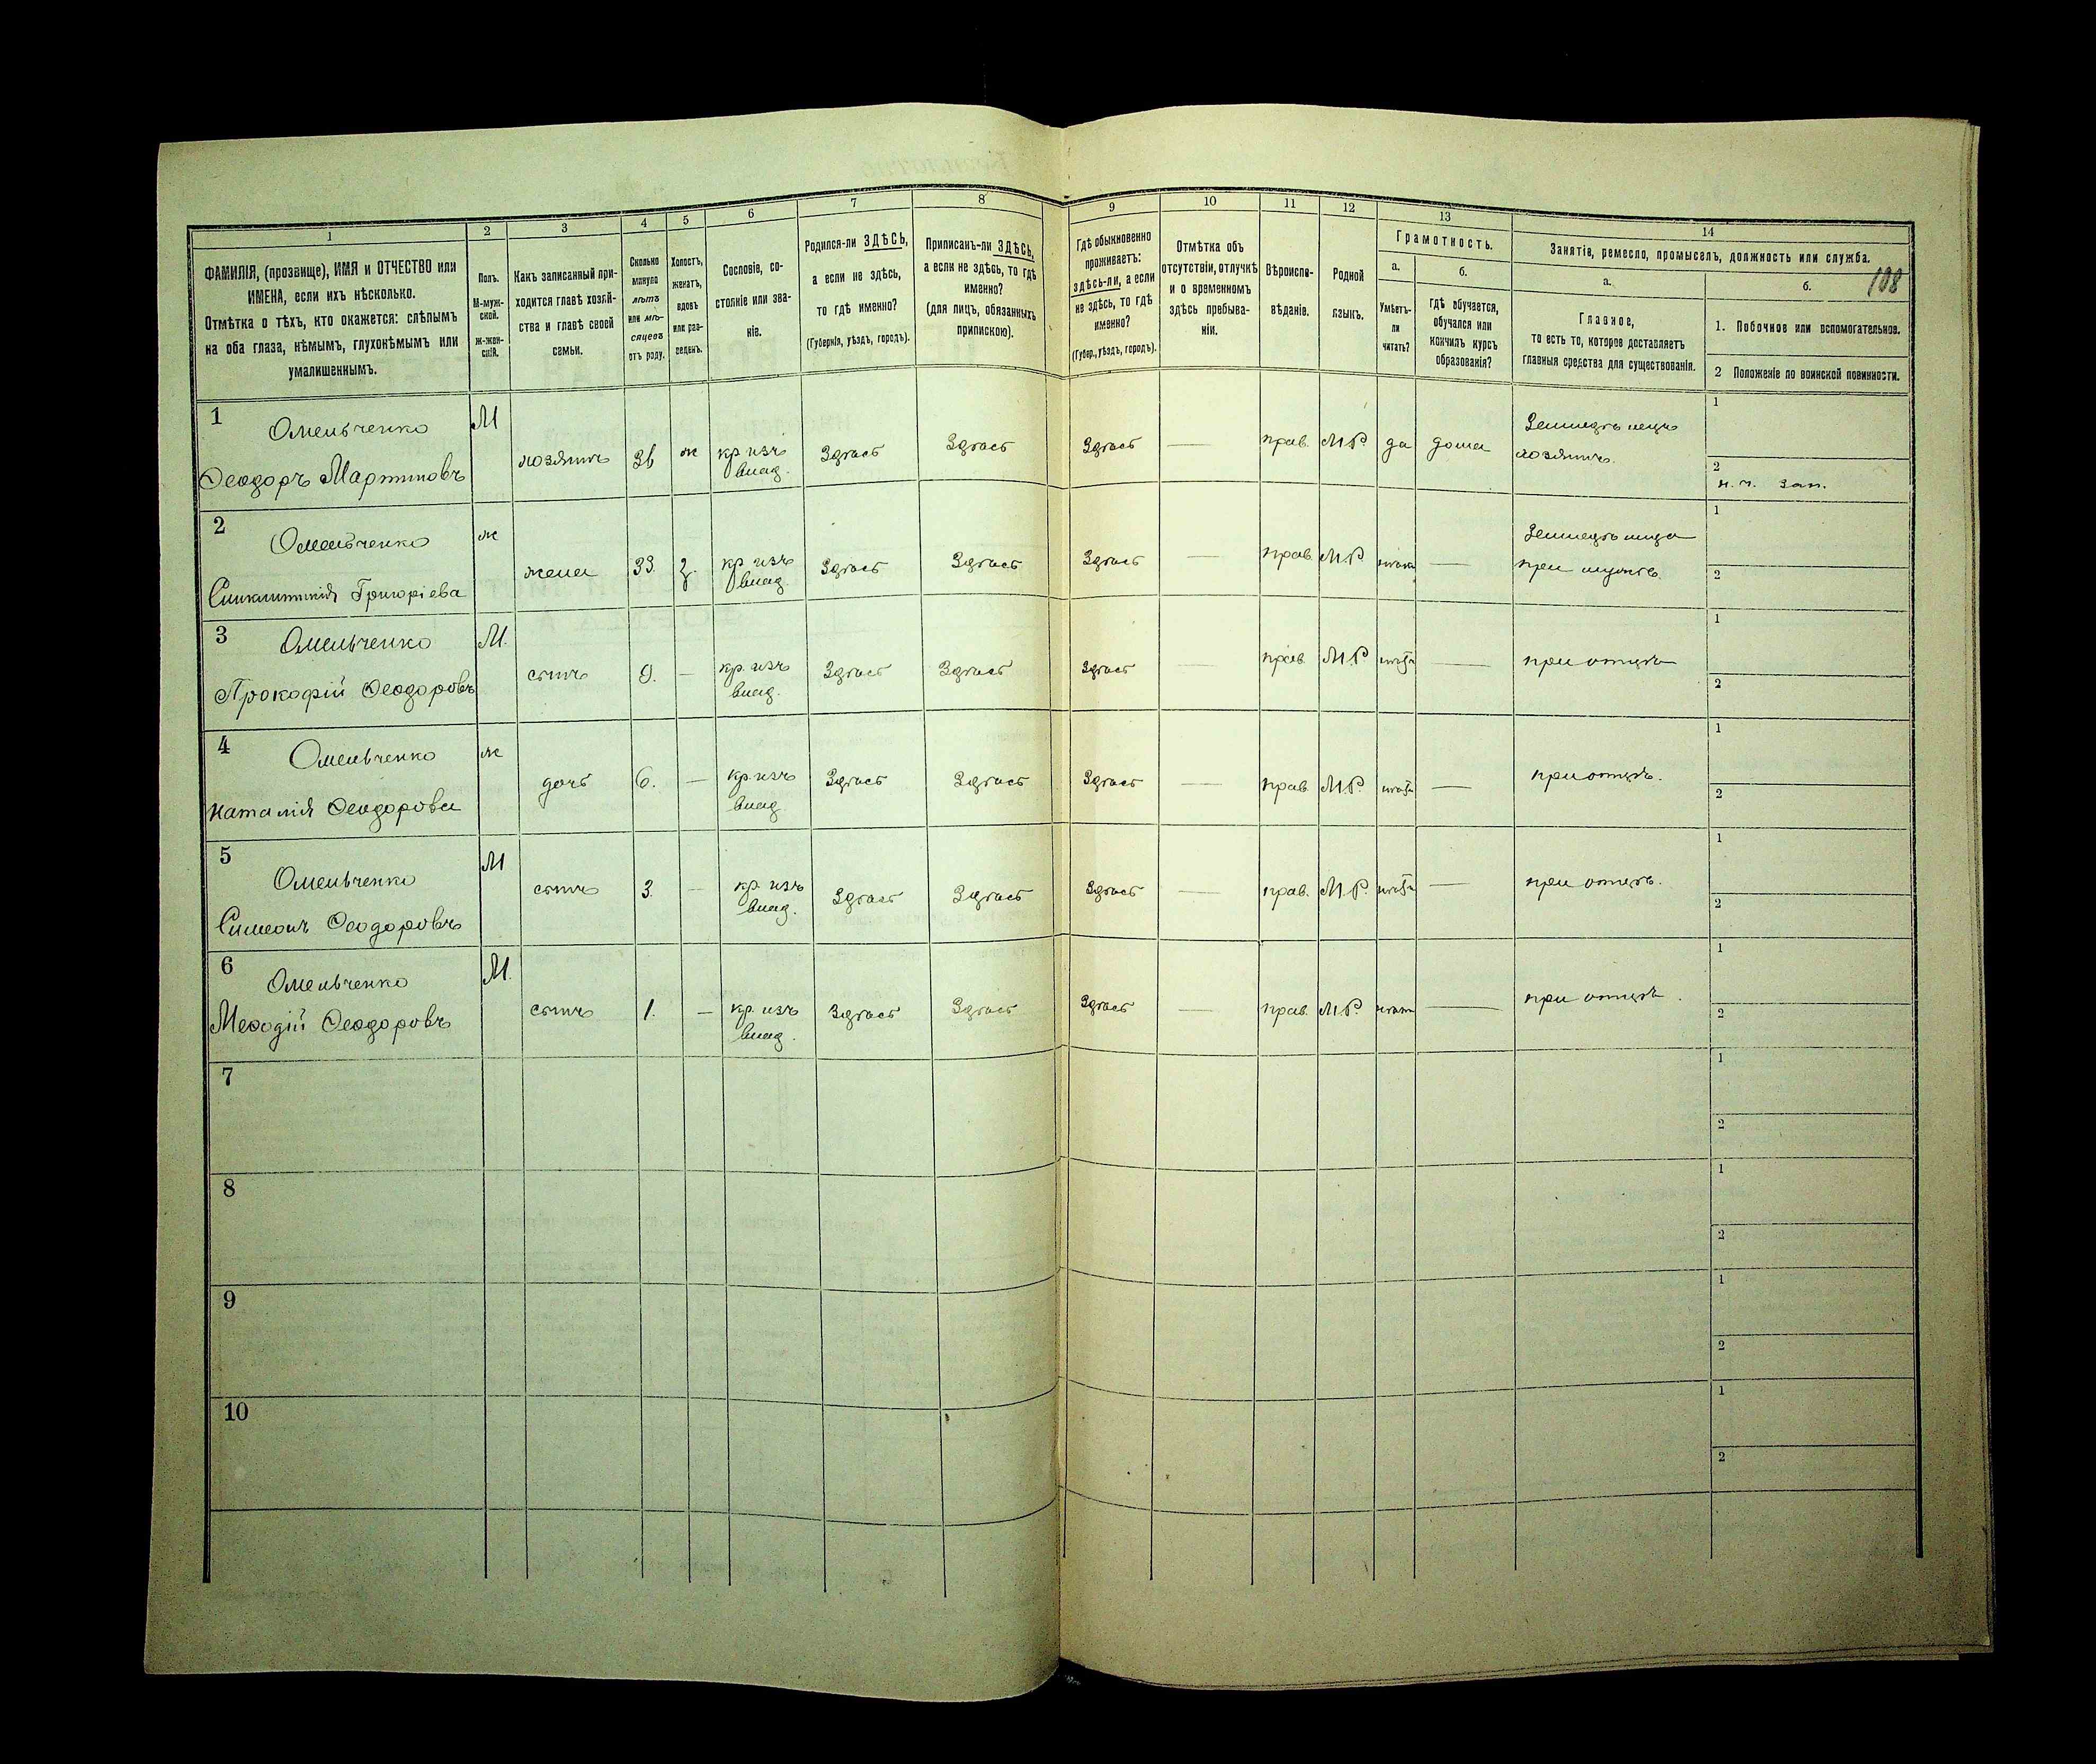 1 2 3 4 5 6 7 8 9 10 11 12 13 14
ФАМИЛІЯ, (прозвище), ИМЯ и ОТЧЕСТВО или
ИМЕНА, если ихъ нѣсколько.
Отмѣтка о тѣхъ, кто окажется: слѣпымъ
на оба глаза, нѣмымъ, глухонѣмымъ или
умалишеннымъ.
Полъ.
М-муж-
ской.
Ж-жен-
скій.
Какъ записанный при-
ходится главѣ хозяй-
ства и главѣ своей
семьи.
Сколько
минуло
лѣтъ
или мѣ-
сяцевъ
отъ роду.
Холостъ,
женатъ,
вдовъ
или раз-
веденъ.
Сословіе, со-
стояніе или зва-
ніе.
Родился-ли ЗДѢСЬ,
а если не здѣсь,
то гдѣ именно?
(Губернія, уѣздъ, городъ).
Приписанъ-ли ЗДѢСЬ,
а если не здѣсь, то гдѣ
именно?
(для лицъ, обязанныхъ
припискою).
Гдѣ обыкновенно
проживаетъ:
здѣсь-ли, а если
не здѣсь, то гдѣ
именно?
(Губер., уѣздъ, городъ).
Отмѣтка объ
отсутствіи, отлучкѣ
и о временномъ
здѣсь пребыва-
ніи.
Вѣроиспо-
вѣданіе.
Родной
языкъ.
Грамотность.
а.
Умѣетъ-
ли
читать?
б.
гдѣ обучается,
обучался или
кончилъ курсъ
образованія?
Занятіе, ремесло, промыселъ, должность или служба.
108
а.
Главное,
то есть то, которое доставляетъ
главныя средства для существованія.
б.
1. Побочное или вспомогательное.
2 Положеніе по воинской повинности.
1 Омельченко М хозяинъ ж кр. изъ Здѣсь Здѣсь Здѣсь — прав. М.Р. да дома Земледѣлецъ 1
Ѳеодоръ Мартиновъ влад. хозяинъ. 2
н. ч. зап.
2 Омельченко ж жена 33. З. кр. изъ Здѣсь Здѣсь Здѣсь — прав. М.Р. — Земледѣлица 1
Синклитикія Григоріева влад. при мужѣ. 2
3 Омельченко М. сынъ 9. — кр. изъ Здѣсь Здѣсь Здѣсь — прав. М.Р. — при отцѣ 1
Прокофій Ѳеодоровъ влад. 2
4 Омельченко ж дочь 6. — кр. изъ Здѣсь Здѣсь Здѣсь — прав. М.Р. — при отцѣ. 1
Наталія Ѳеодорова влад. 2
5 Омельченко М сынъ 3. — кр. изъ Здѣсь Здѣсь Здѣсь — прав. М.Р. — при отцѣ. 1
Симеонъ Ѳеодоровъ влад. 2
6 Омельченко М. сынъ 1. — кр. изъ Здѣсь Здѣсь Здѣсь — прав. М.Р. — при отцѣ. 1
Меѳодій Ѳеодоровъ влад. 2
7 1
2
8 1
2
9 1
2
10 1
2